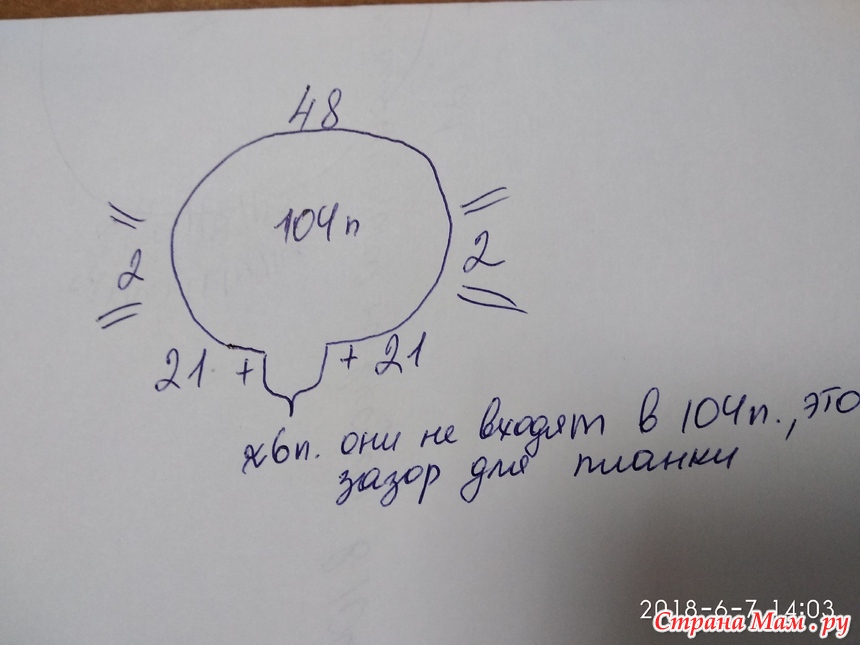 48
104п
2
2
21 +
+ 21
6п. они не входят в 104п., это
зазор для планки
2018-6-7 14:03
Страна Мам.ру